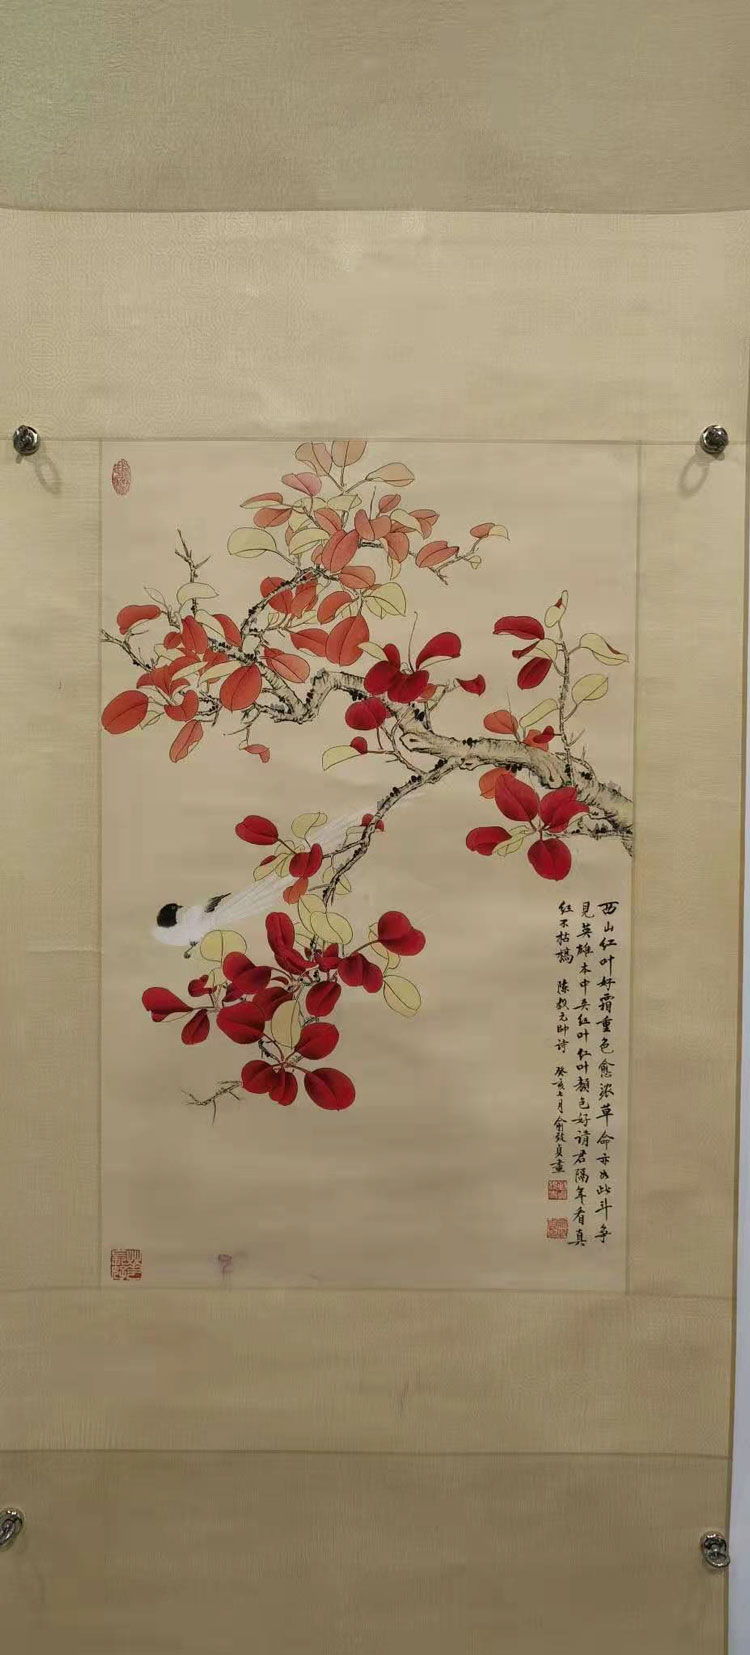 西山红叶好霜重色愈浓革命亦如此斗争
见英雄本中夹红叶红叶颜色好请君隔年看真
红不枯槁 陈毅元帅诗 癸亥七月俞致贞画